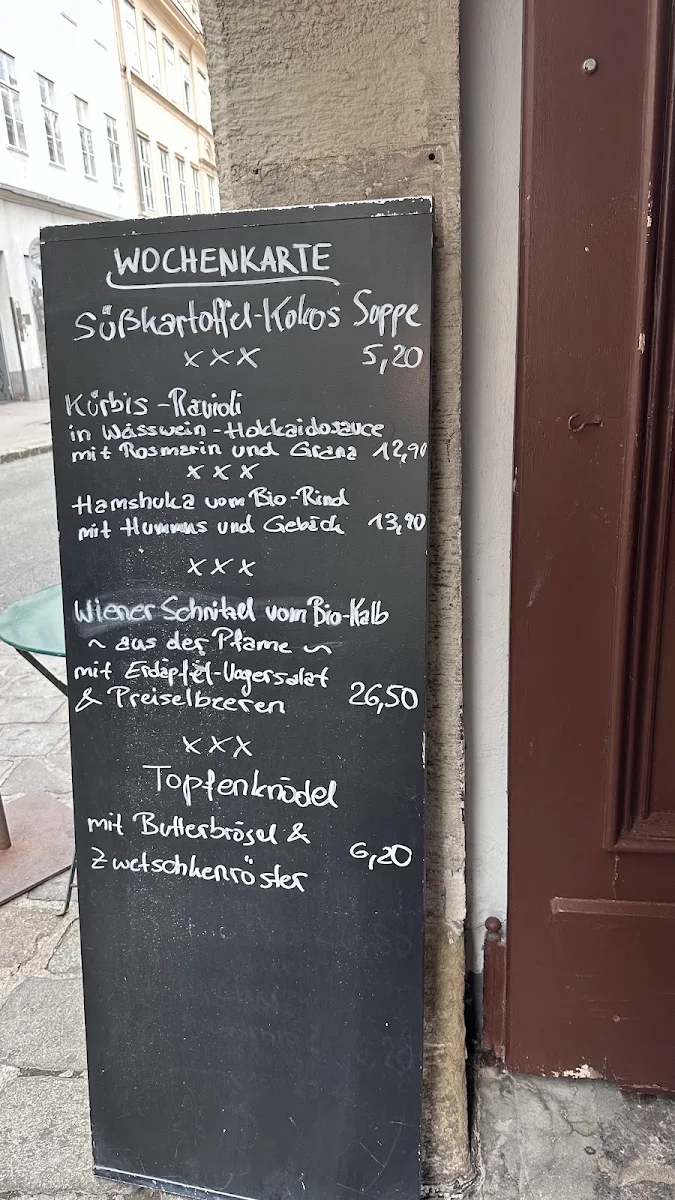 WOCHENKARTE
Süßkartoffel-Kokos Suppe
xxx 5,20
Kürbis-Ravioli
in Weisswein-Hokkaidosauce
mit Rosmarin und Grana 12,90
xxx
Hamshuka vom Bio-Rind
mit Hummus und Gebäck 13,90
xxx
Wiener Schnitzel vom Bio-Kalb
~ aus der Pfanne ~
mit Erdäpfel-Vogersalat
& Preiselbeeren 26,50
xxx
Topfenknödel
mit Butterbrösel &
Zwetschkenröster 6,20